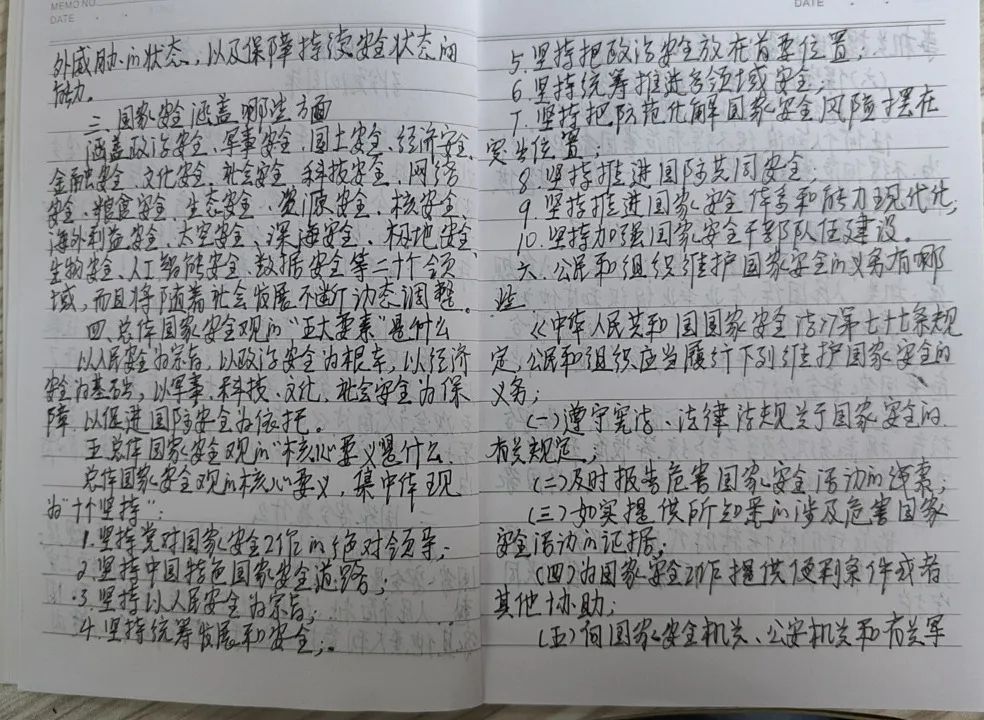 MEMO NO.
DATE
外威胁的状态，以及保障持续安全状态的
能力。
三、国家安全涵盖哪些方面
涵盖政治安全、军事安全、国土安全、经济安全、
金融安全、文化安全、社会安全、科技安全、网络
安全、粮食安全、生态安全、资源安全、核安全、
海外利益安全、太空安全、深海安全、极地安全、
生物安全、人工智能安全、数据安全等二十个领
域，而且将随着社会发展不断动态调整。
四、总体国家安全观的“五大要素”是什么
以人民安全为宗旨，以政治安全为根本，以经济
安全为基础，以军事、科技、文化、社会安全为保
障，以促进国防安全为依托。
五、总体国家安全观的“核心要义”是什么
总体国家安全观的核心要义，集中体现
为“十个坚持”：
1.坚持党对国家安全工作的绝对领导；
2.坚持中国特色国家安全道路；
3.坚持以人民安全为宗旨；
4.坚持统筹发展和安全；
DATE
5.坚持把政治安全放在首要位置；
6.坚持统筹推进各领域安全；
7.坚持把防范化解国家安全风险摆在
突出位置；
8.坚持推进国防共同安全；
9.坚持推进国家安全体系和能力现代化；
10.坚持加强国家安全干部队伍建设。
六、公民和组织维护国家安全的义务有哪
些
《中华人民共和国国家安全法》第七十七条规
定，公民和组织应当履行下列维护国家安全的
义务；
（一）遵守宪法、法律法规关于国家安全的
有关规定；
（二）及时报告危害国家安全活动的线索；
（三）如实提供所知悉的涉及危害国家
安全活动的证据；
（四）为国家安全工作提供便利条件或者
其他协助；
（五）向国家安全机关、公安机关和有关军